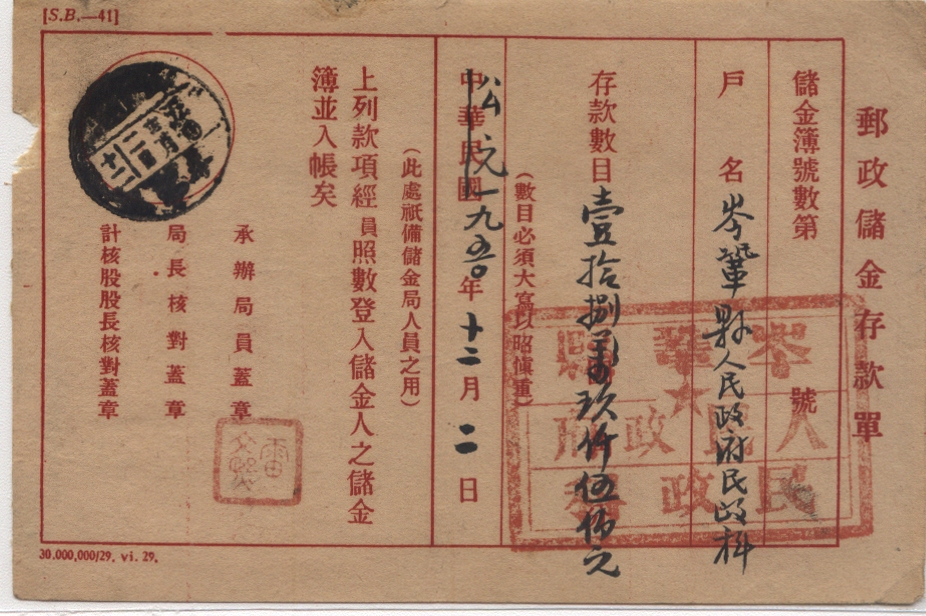 [S.B.—41]
郵政儲金存款單
儲金簿號數第 號
戶名 岑鞏縣人民政府民政科
存款數目 壹拾捌萬玖仟伍佰元
(數目必須大寫以昭愼重)
中華民國 公元一九五〇年十二月二日
(此處祇備儲金局人員之用)
上列款項經員照數登入儲金人之儲金
簿並入帳矣
承辦局員蓋章
局長核對蓋章
計核股股長核對蓋章
岑鞏縣
人民政府
民政科
雷
30,000,000/29. vi. 29.